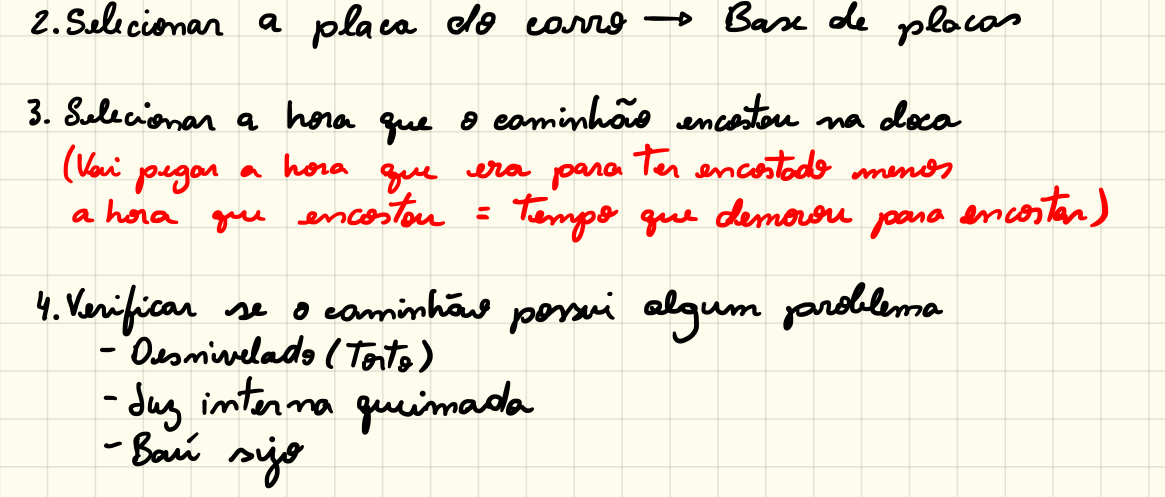 2. Selecionar a placa do carro → Base de placas
3. Selecionar a hora que o caminhão encostou na doca
(Vai pegar a hora que era para ter encostado menos
a hora que encostou = tempo que demorou para encostar)
4. Verificar se o caminhão possui algum problema
- Desnivelado (Torto)
- Luz interna queimada
- Baú sujo